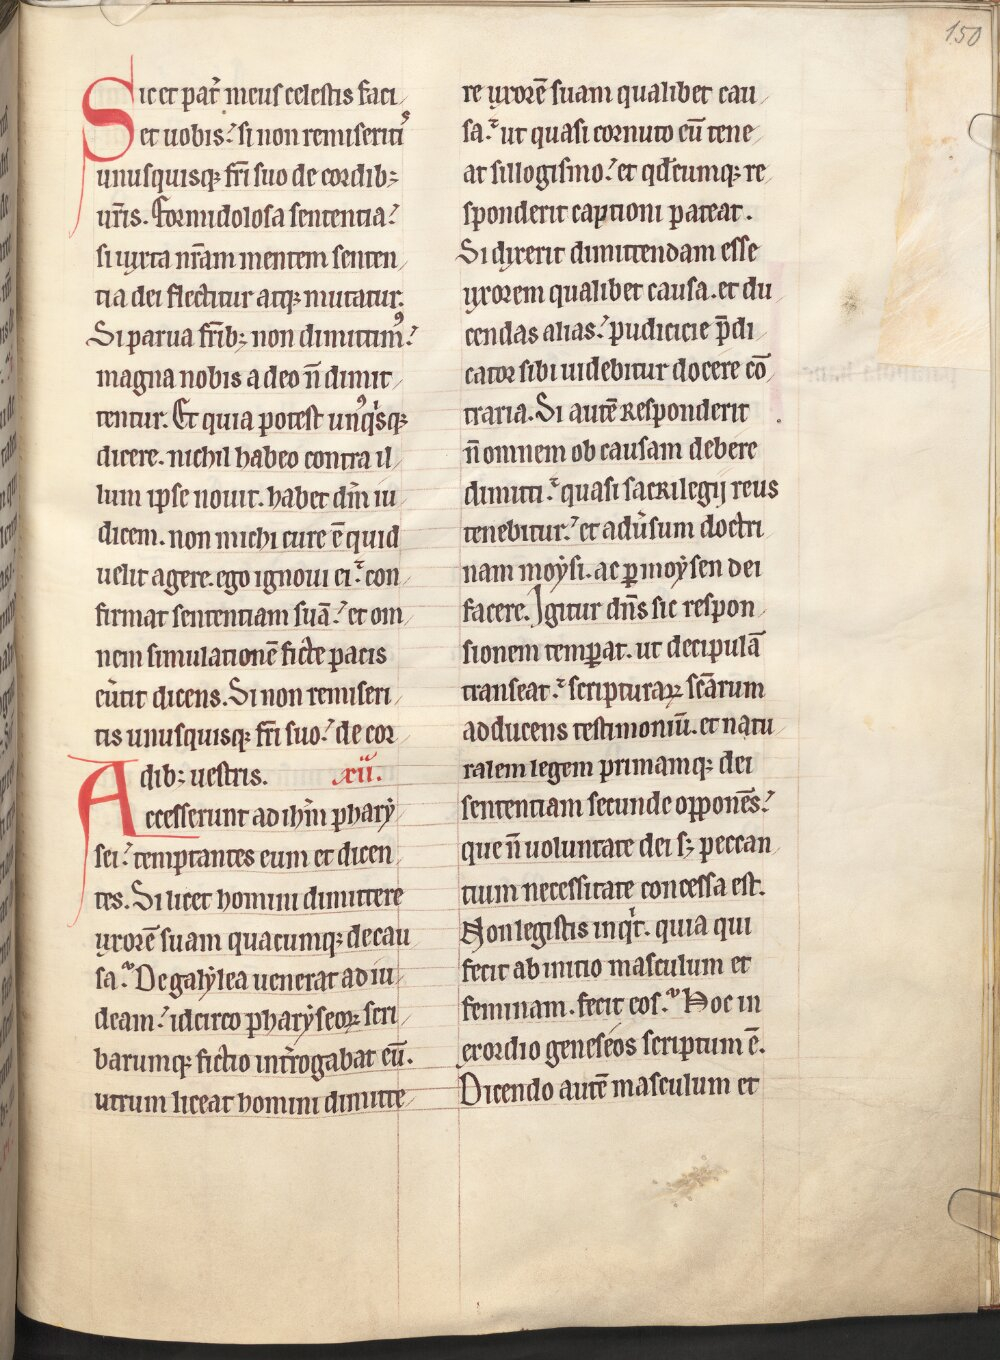 150
Sic et pat̄ meus celestis faci
et uobis. si non remiseritꝰ
unusquisqꝫ fr̄i suo de cordibꝫ
ur̄is. Formidolosa sententia.
si iuxta nr̄am mentem senten
tia dei flectitur atqꝫ mutatur.
Si parua fr̄ibꝫ non dimittimꝰ.
magna nobis a deo n̄ dimit
tentur. Et quia potest unꝰqͥsqꝫ
dicere. nichil habeo contra il
lum ipse nouit. habet dm̄ iu
dicem. non michi cure ē quid
uelit agere. ego ignoui ei. con
firmat sententiam suā. et om
nem simulationē ficte pacis
eu̅tit dicens. Si non remiseri
tis unusquisqꝫ fr̄i suo. de cor
dibꝫ uestris. xii.
Accesserunt ad ihm̄ pharẏ
sei. temptantes eum et dicen
tes. Si licet homini dimittere
uxorē suam quacumqꝫ de cau
sa. De galẏlea uenerat ad iu
deam. idcirco pharẏseoꝝ scri
barumqꝫ fictio int̄rogabat eū.
utrum liceat homini dimitte
re uxorē suam qualibet cau
sa. ut quasi cornuto eū tene
at sillogismo. et qd̄cumqꝫ re
sponderit captioni pateat.
Si dixerit dimittendam esse
uxorem qualibet causa. et du
cendas alias. pudicicie p̄di
cator sibi uidebitur docere cō
traria. Si autē responderit
n̄ omnem ob causam debere
dimitti. quasi sacrilegij reus
tenebitur. et adu̅sum doctri
nam moẏsi. ac ꝑ moẏsen dei
facere. Igitur dn̄s sic respon
sionem temꝑat. ut decipulā
transeat. scripturaꝝ scārum
adducens testimoniū. et natu
ralem legem primamqꝫ dei
sententiam secunde opponēs.
que n̄ uoluntate dei sꝫ peccan
tium necessitate concessa est.
Non legistis inqͥt. quia qui
fecit ab initio masculum et
feminam. fecit eos. Hoc in
exordio geneseos scriptum ē.
Dicendo autē masculum et